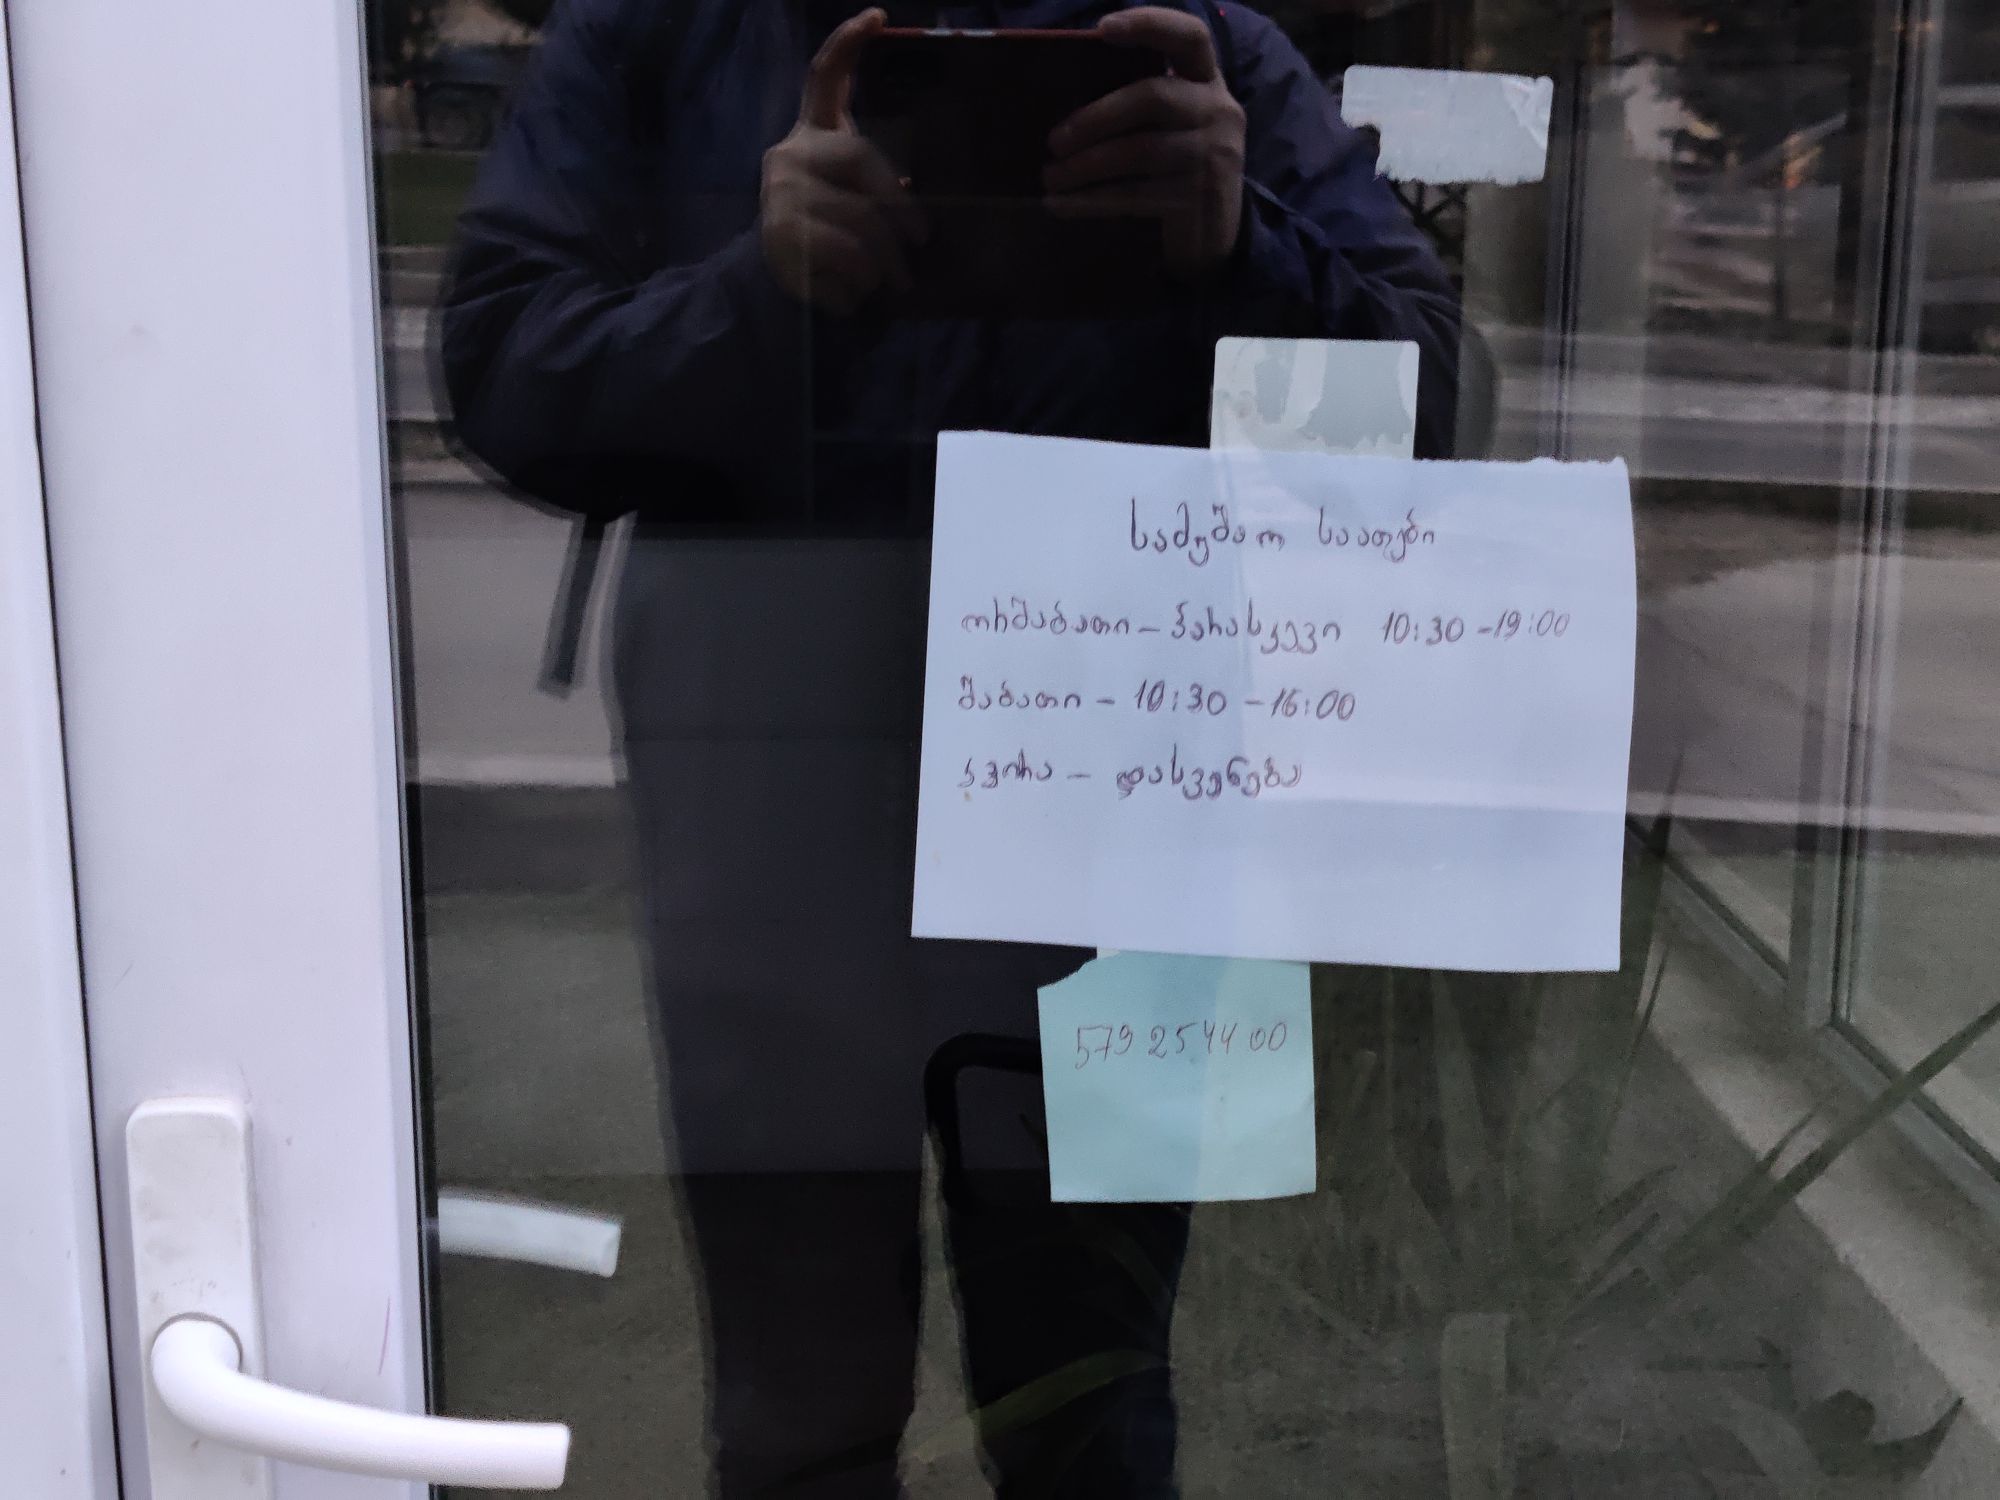 სამუშაო საათები
ორშაბათი - პარასკევი 10:30 - 19:00
შაბათი - 10:30 - 16:00
კვირა - დასვენება
579 25 44 00